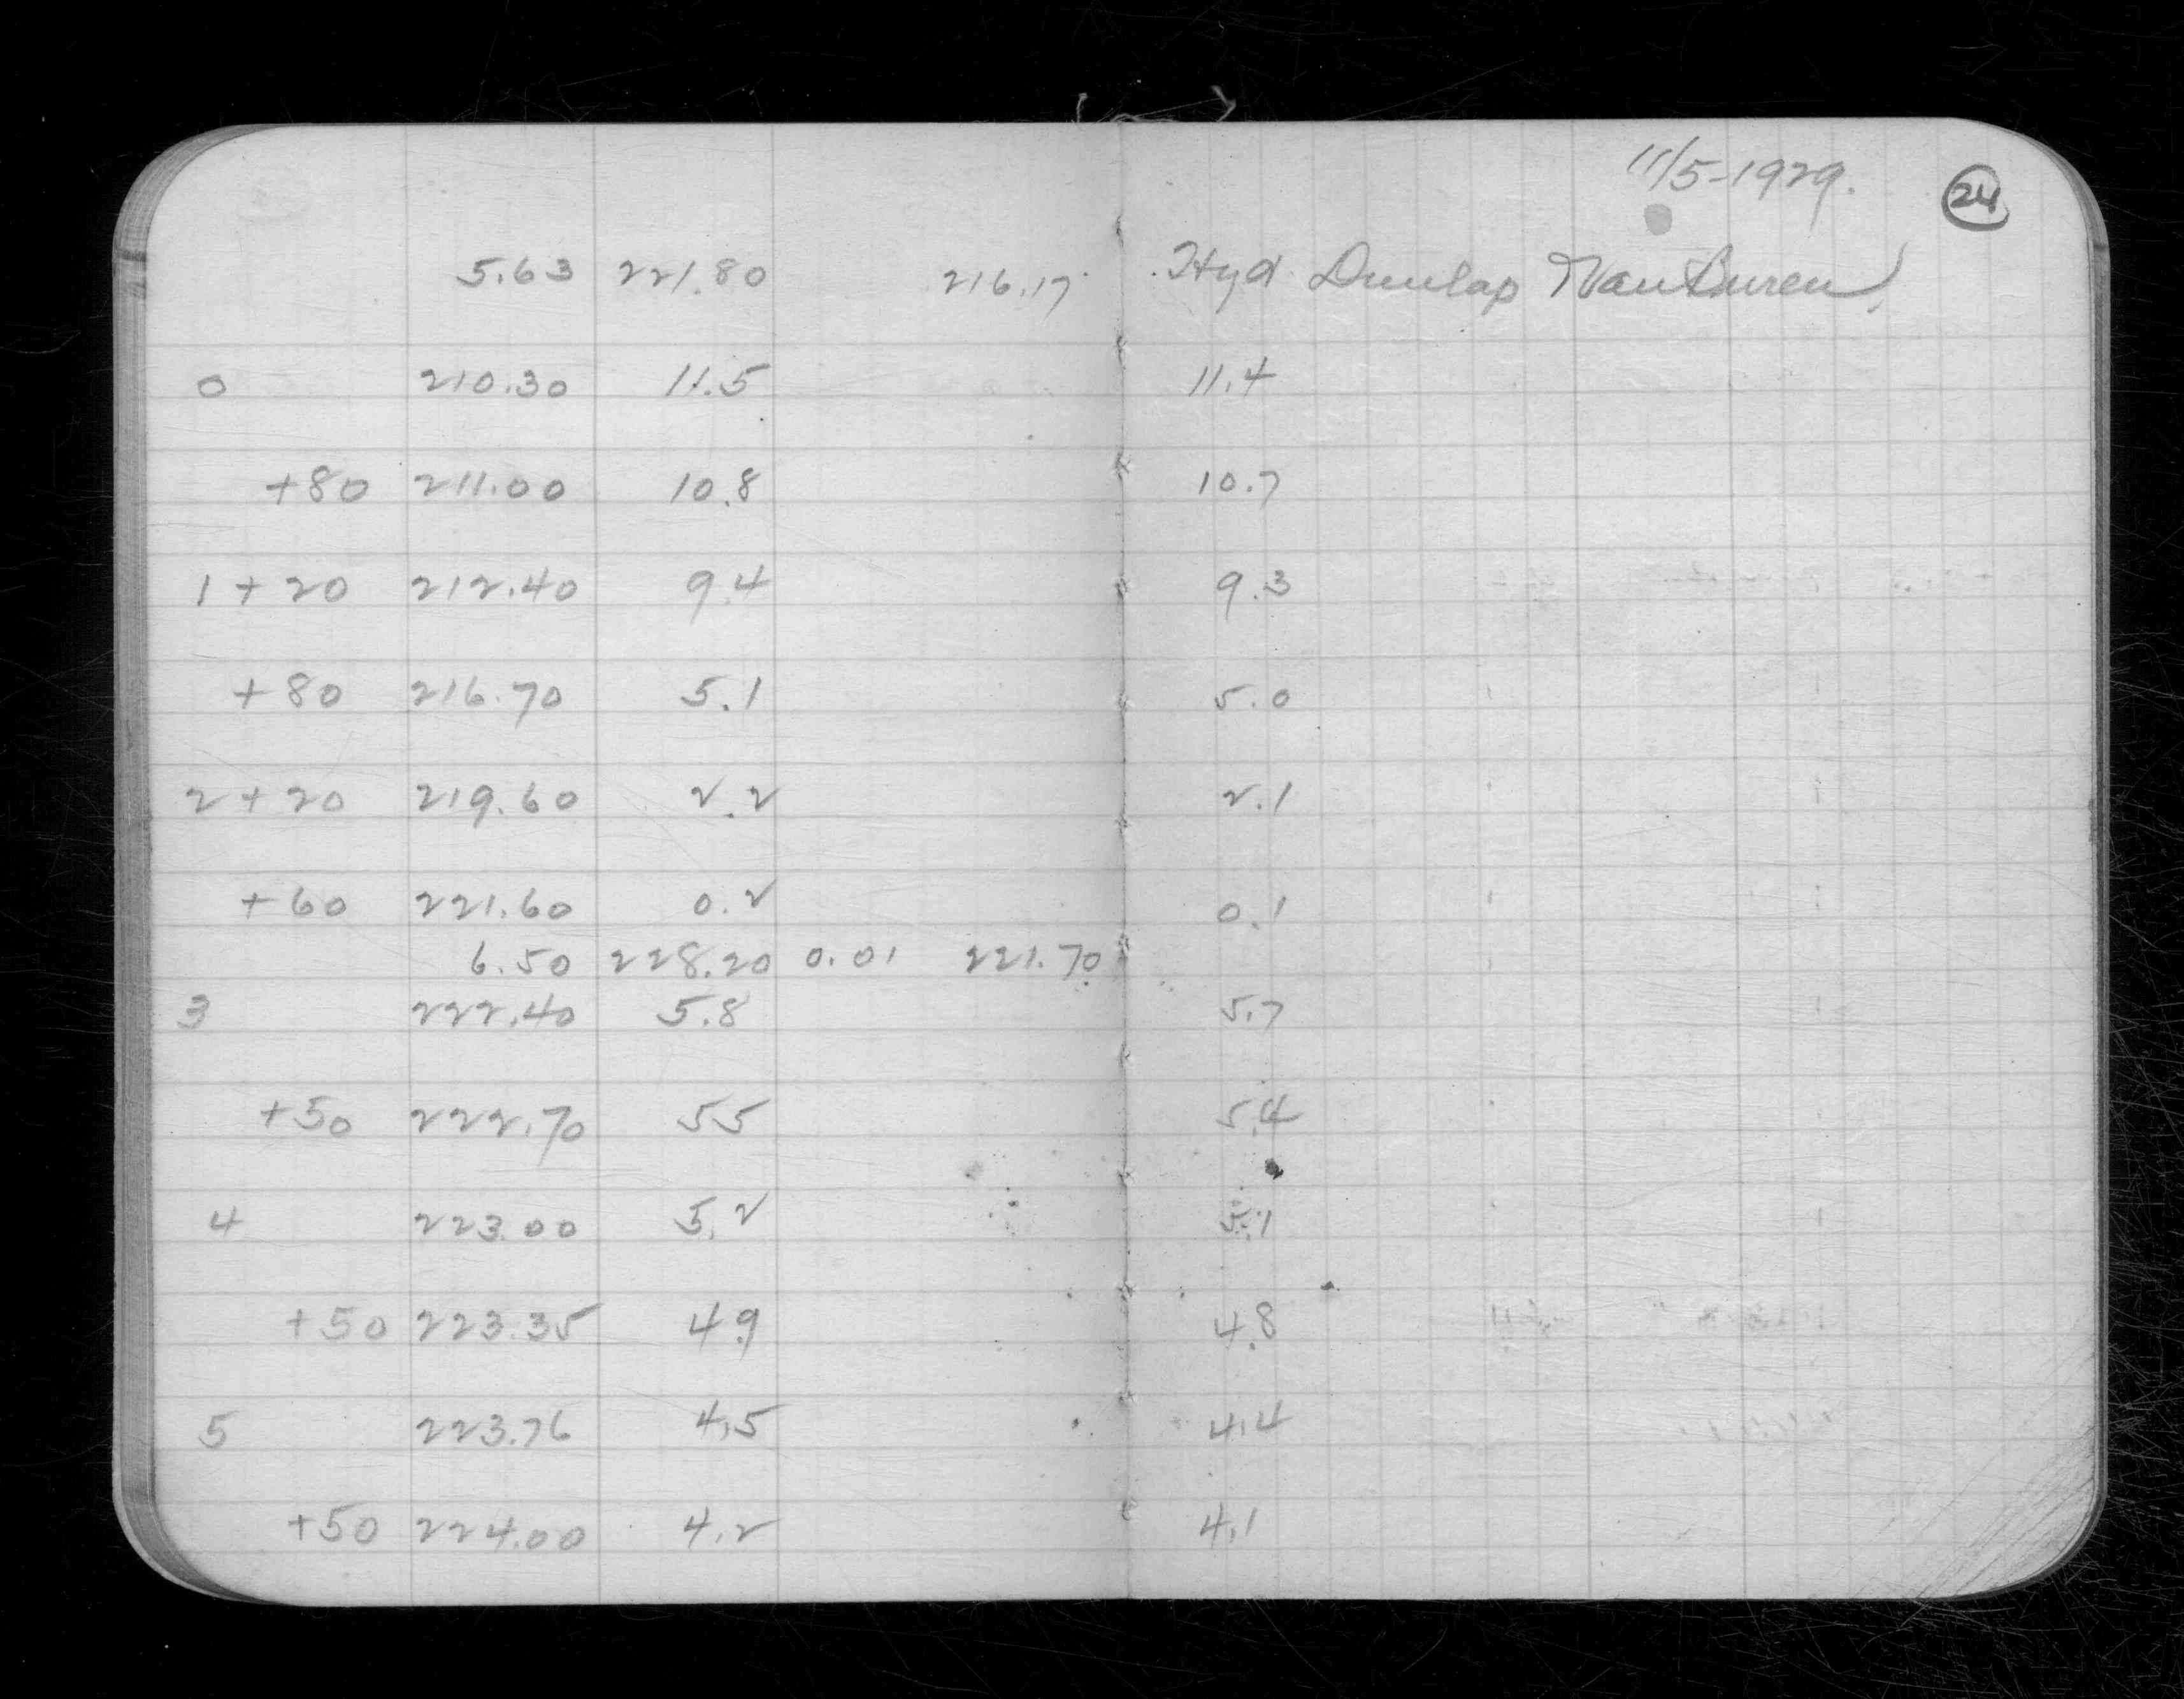 11/5-1929. 24
5.63 221.80 216.17 Hyd Dunlap & Van Buren
0 210.30 11.5 11.4
+80 211.00 10.8 10.7
1+20 212.40 9.4 9.3
+80 216.70 5.1 5.0
2+20 219.60 2.2 2.1
+60 221.60 0.2 0.1
6.50 228.20 0.01 221.70
3 222.40 5.8 5.7
+50 222.70 55 5.4
4 223.00 5.2 5.1
+50 223.35 4.9 4.8
5 223.76 4.5 4.4
+50 224.00 4.2 4.1